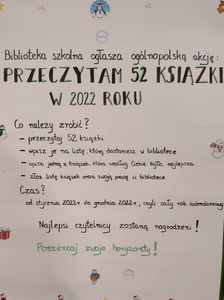 Biblioteka szkolna ogłasza ogólnopolską akcję:
PRZECZYTAM 52 KSIĄŻKI
W 2022 ROKU
Co należy zrobić?
- przeczytaj 52 książki
- wpisz je na listę, którą dostaniesz w bibliotece
- opisz jedną z książek, która według Ciebie była najlepsza
- złóż listę książek oraz swoją pracę w bibliotece
Czas?
od stycznia 2022r do grudnia 2022r, czyli cały rok kalendarzowy
Najlepsi czytelnicy zostaną nagrodzeni!
Poszerzaj swoje horyzonty!